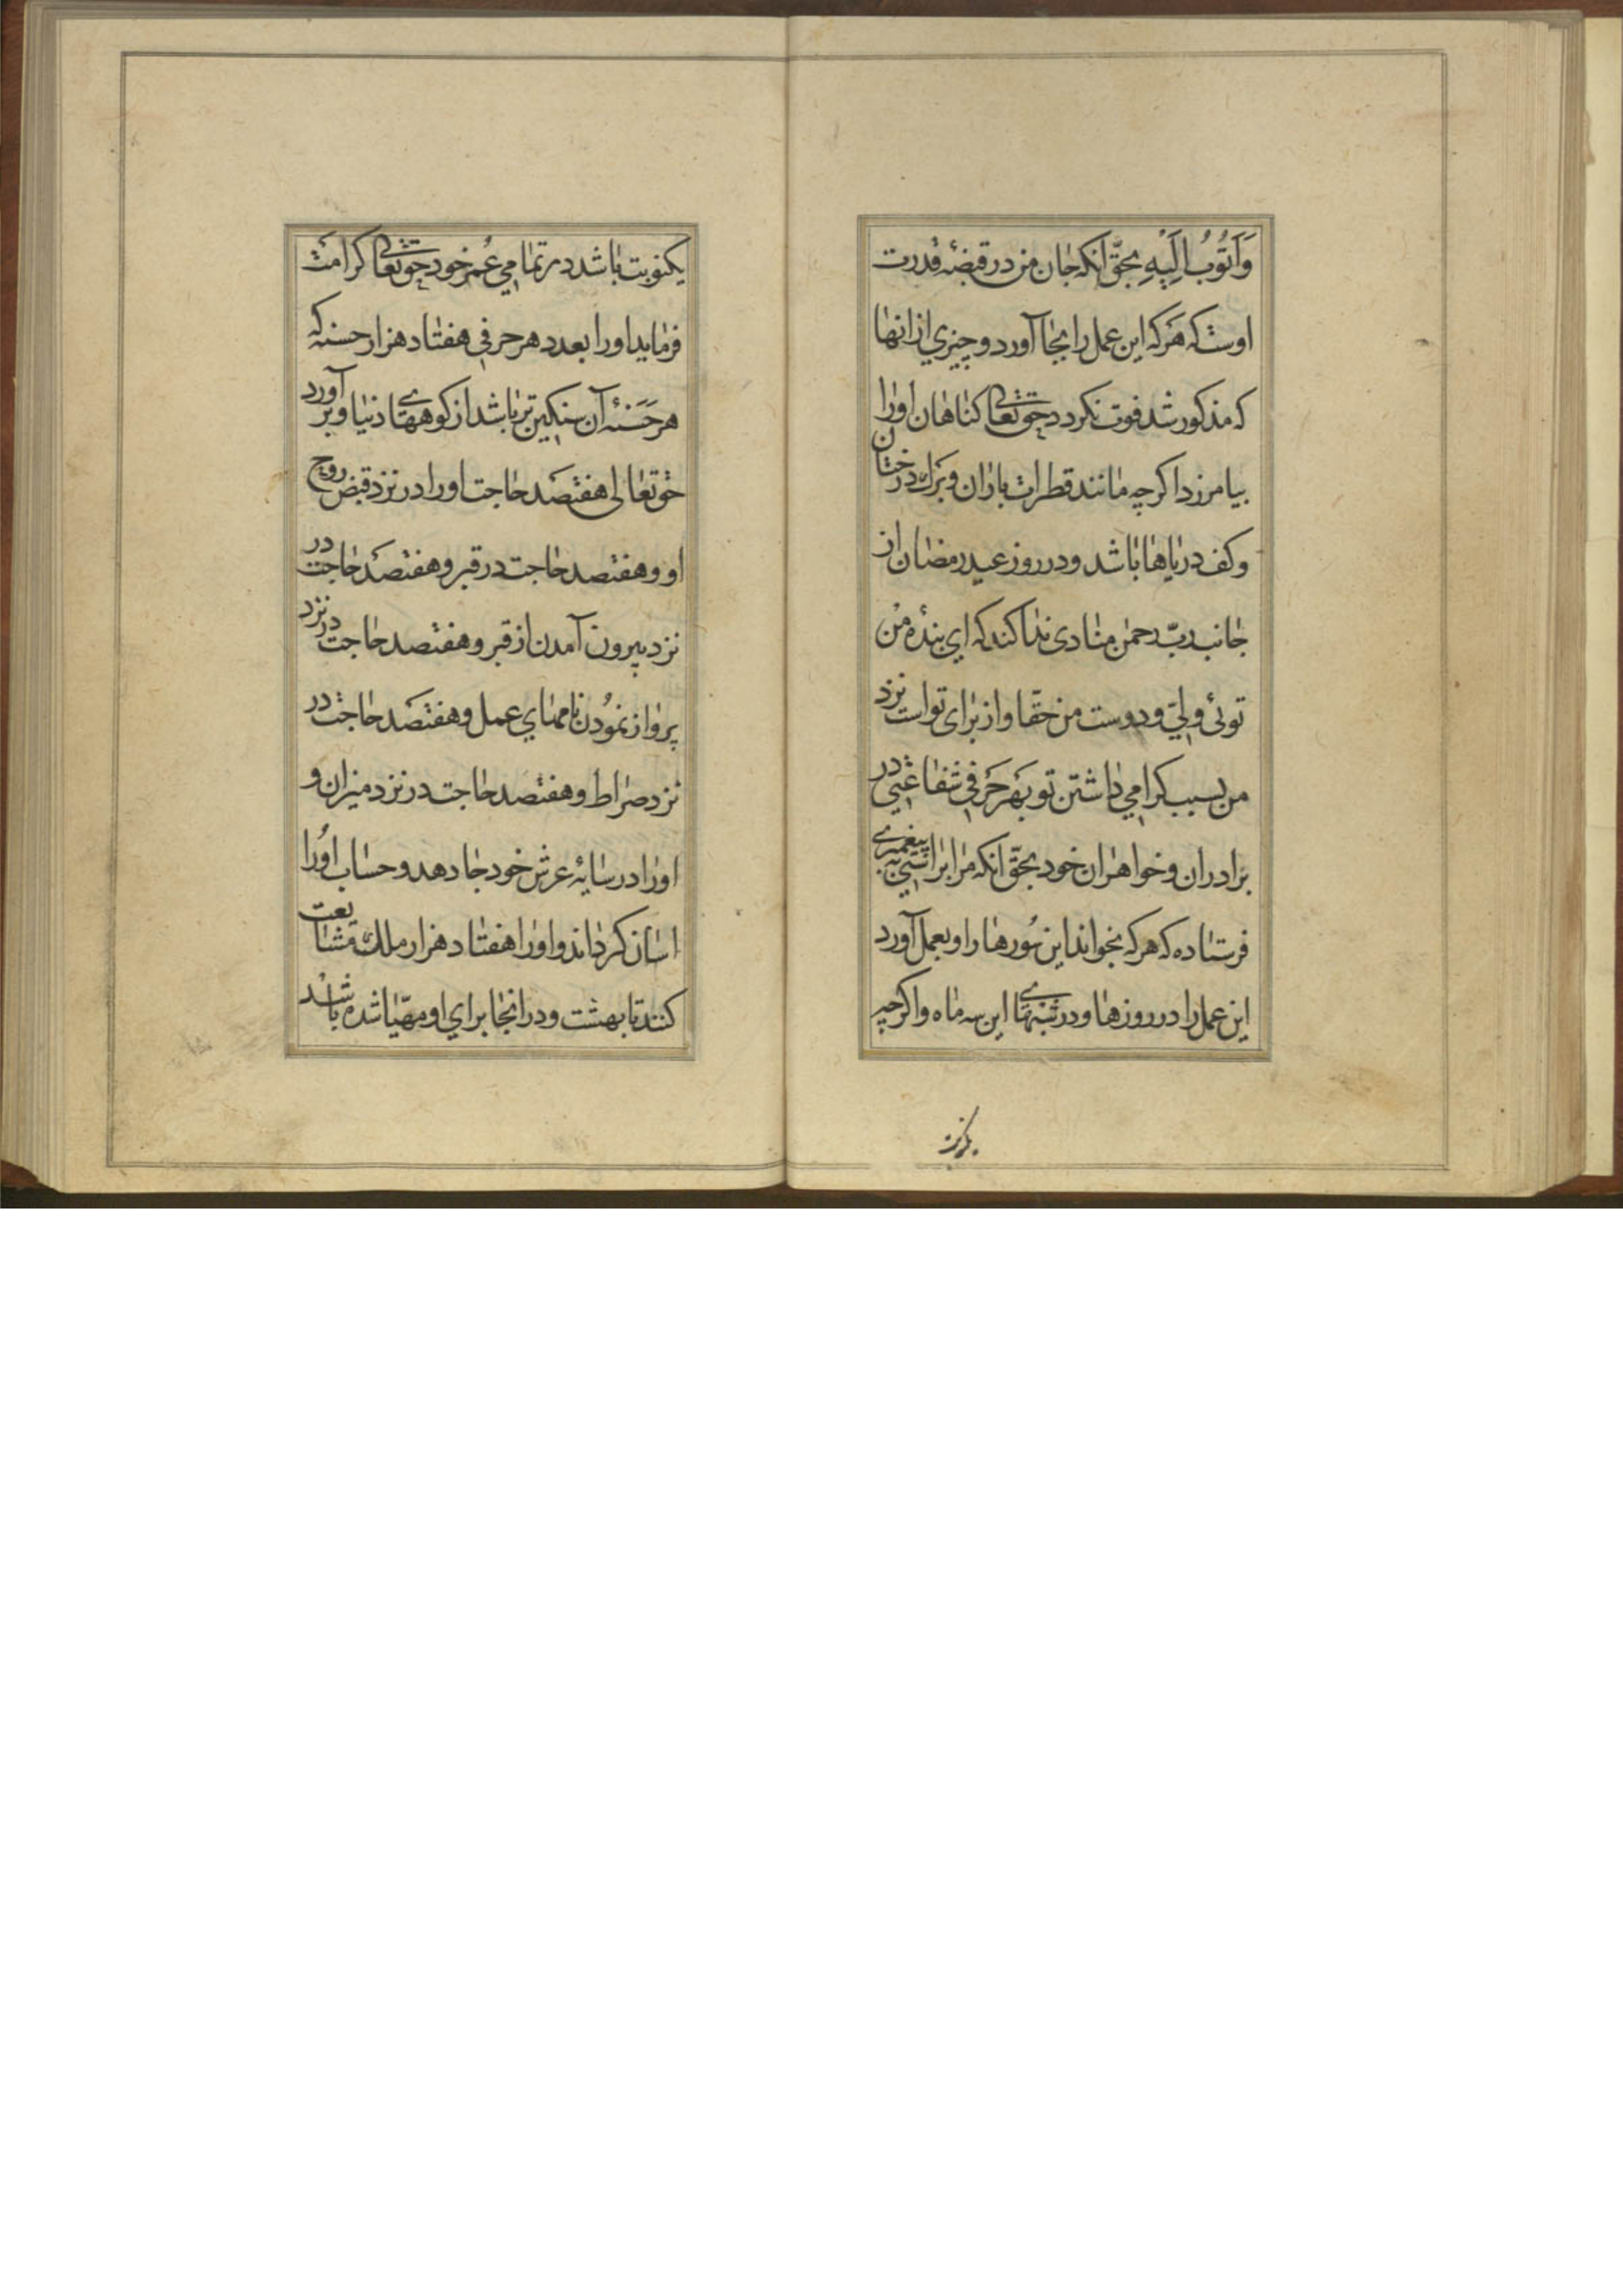 وَاَتُوبُ اِلَيْهِ بحقّ انکه جان من در قبضهٔ قدرت
اوست که هَرکه این عمل را بجا آورد و چیزي از انها
که مذکور شد فوت نکردد حقتعالی کناهان اورا
بیامرزد اکرچه مانند قطرات باران و برك درختان
و کف دریاها باشد و در روز عید رمضان از
جانب ربّ رحمن منادی ندا کند که اي بندهٔ من
توئی ولیّ و دوست من حقّا و از برای تو است نزد
من بسبب کرامي داشتن تو بهَر حَرفي شفاعتي در
برادران و خواهران خود بحقّ انکه مرا براستي به پیغمبرے
فرستاده که هرکه بخواند این سُورها را و بعمل آورد
این عمل را در روزها و در شبهاے این سه ماه و اکرچه
یکنوبت
یکنوبت باشد در تمامي عُمر خود حقتعالی کرامت
فرماید اورا بعدد هر حرفي هفتاد هزار حسنه که
هر حَسَنهٔ آن سنکین تر باشد از کوههاے دنیا و بر آورد
حقتعالی هفتصَد حاجت اورا در نزد قبض روح
او و هفتصد حاجت در قبر و هفتصَد حاجت در
نزد بیرون آمدن از قبر و هفتصد حاجت در نزد
پرواز نمودُن نامهاي عمل و هفتصَد حاجت در
نزد صراط و هفتصد حاجت در نزد میزان و
اورا در سایهٔ عرش خود جا دهد و حساب اورا
اسان کرداند و اورا هفتاد هزار ملك مشایعت
کنند تا بهشت و در انجا براي او مهیّا شده باشد